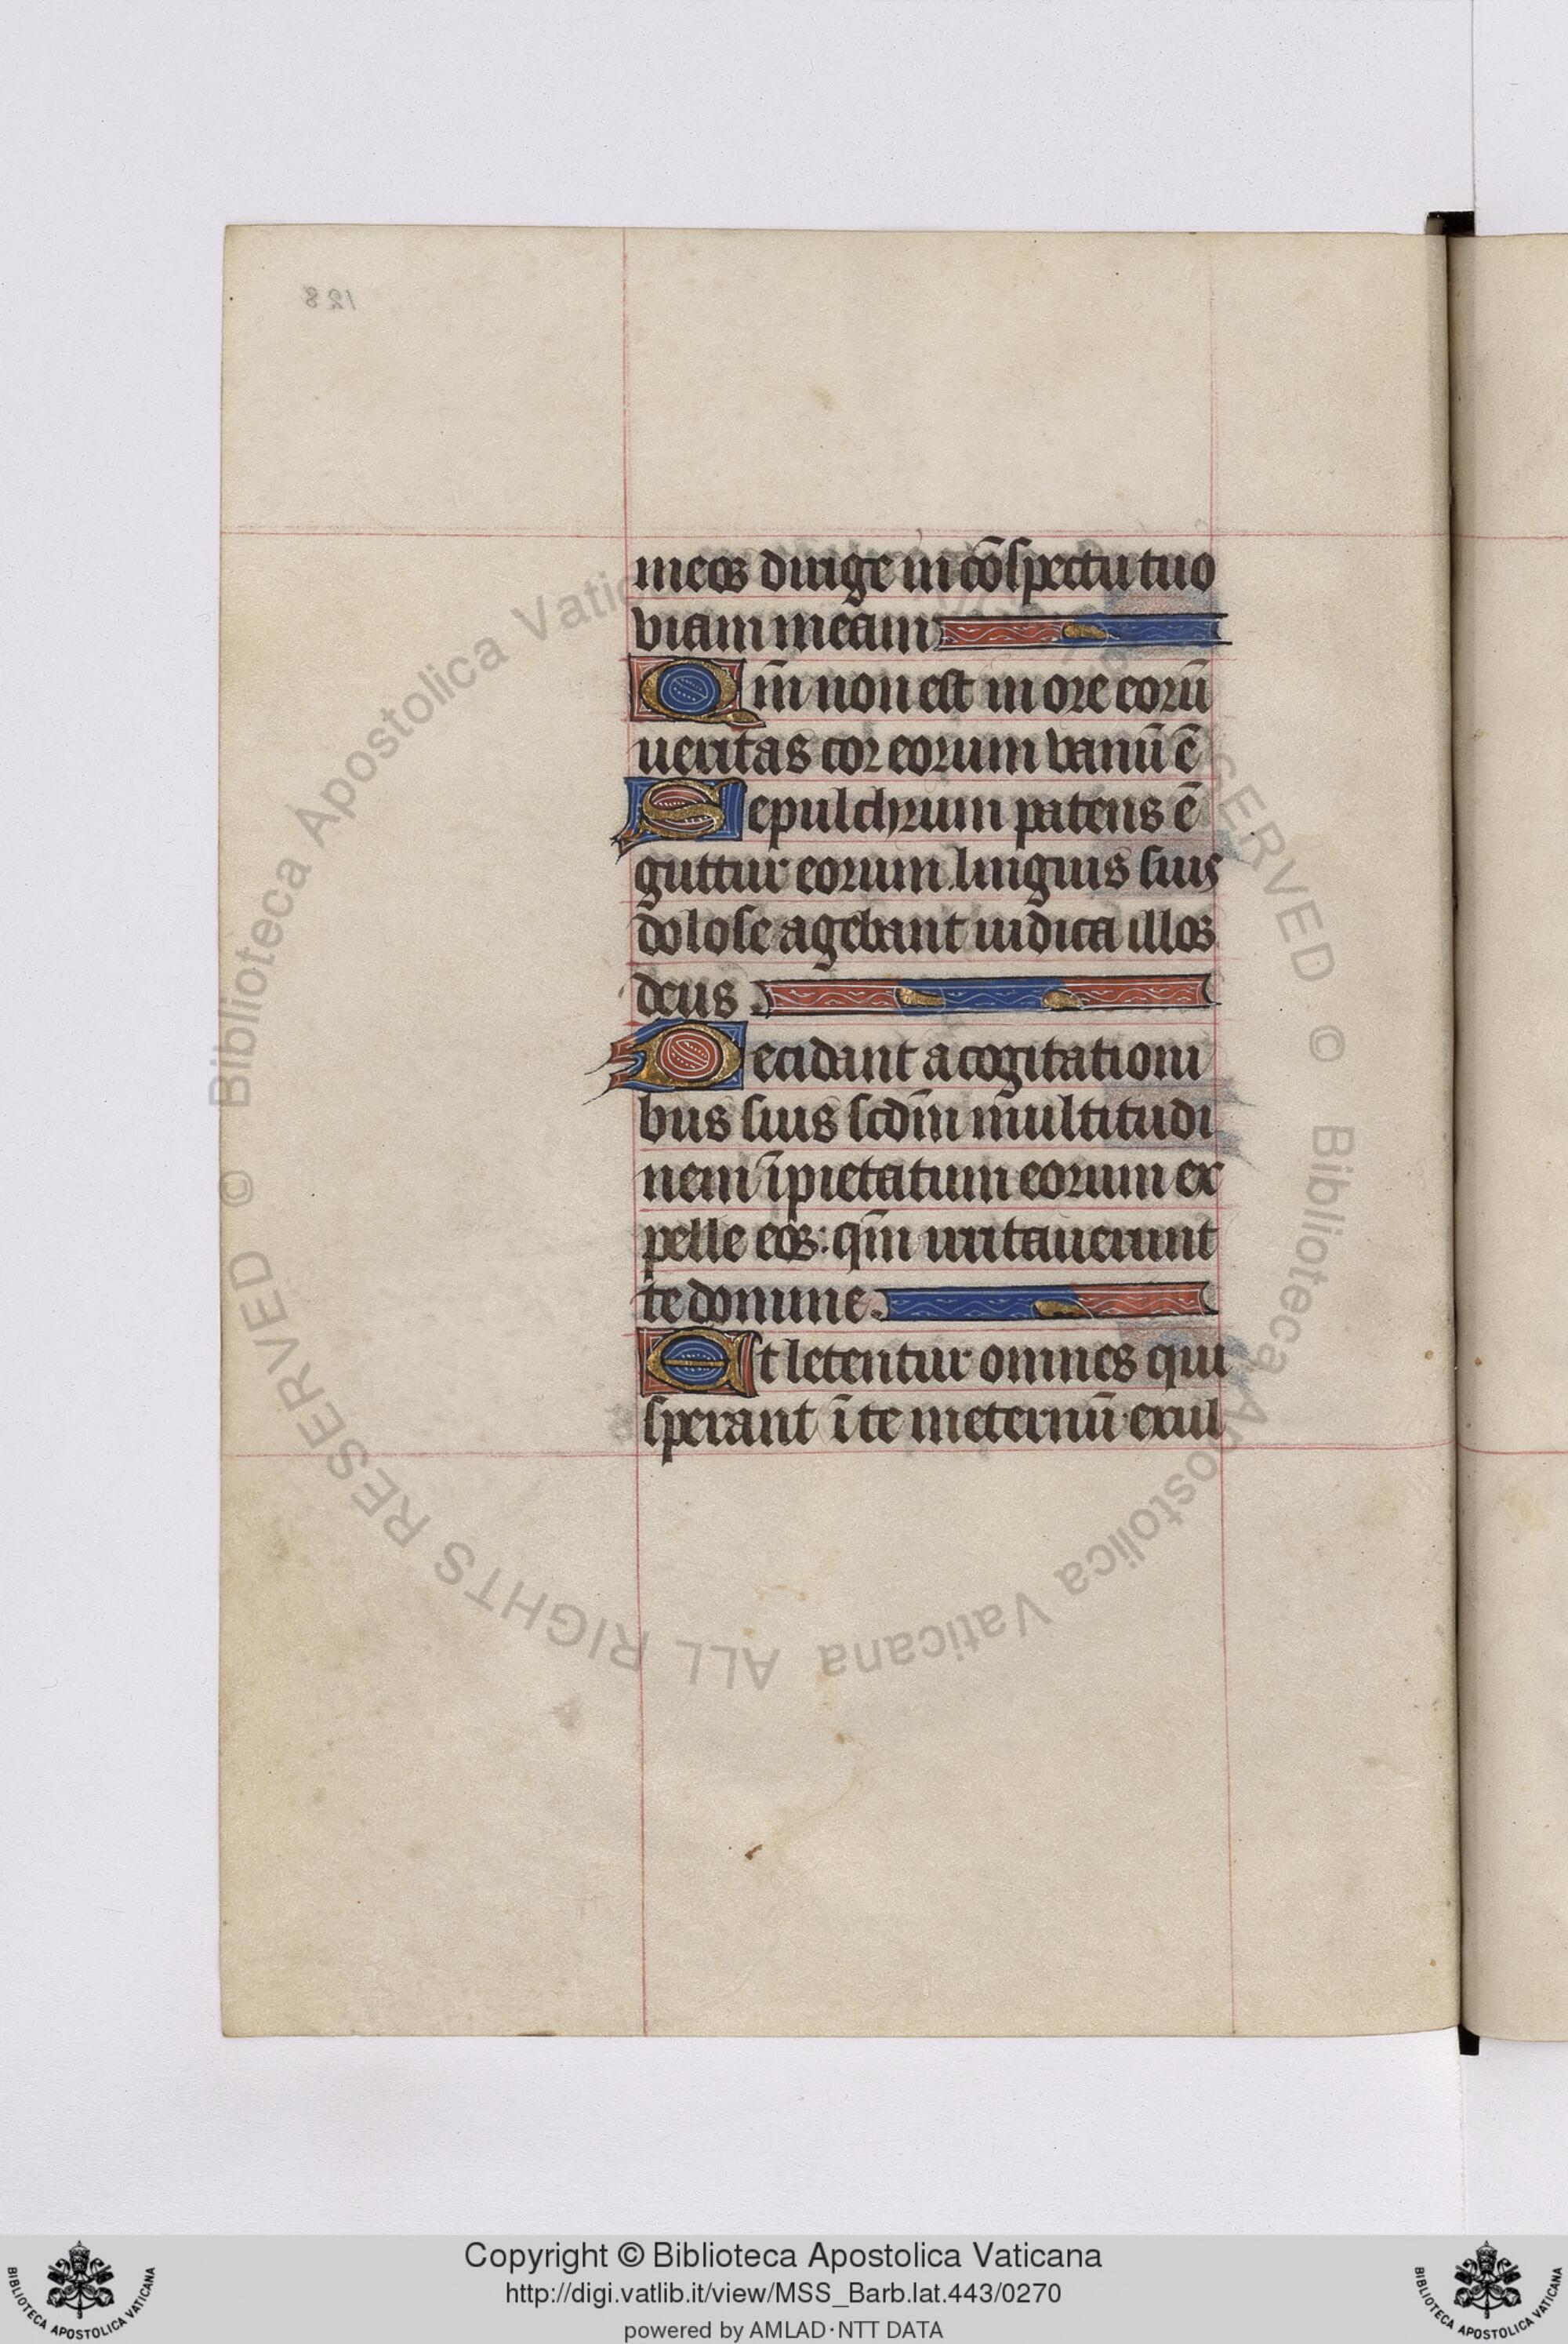 meos dirige in cōspectu tuo
viam meam
Qm̄ non est in ore eorū
ueritas cor eorum vanū ē
Sepulchrum patens ē
guttur eorum linguis suis
dolose agebant iudica illos
deus .
Decidant a cogitationi
bus suis scdm̄ multitudi
nem īpietatum eorum ex
pelle eos: qm̄ irritauerunt
te domine.
Et letentur omnes qui
sperant ī te ineternū exul
128
© Biblioteca Apostolica Vaticana ALL RIGHTS RESERVED
Copyright © Biblioteca Apostolica Vaticana
http://digi.vatlib.it/view/MSS_Barb.lat.443/0270
powered by AMLAD·NTT DATA
BIBLIOTECA APOSTOLICA VATICANA
BIBLIOTECA APOSTOLICA VATICANA